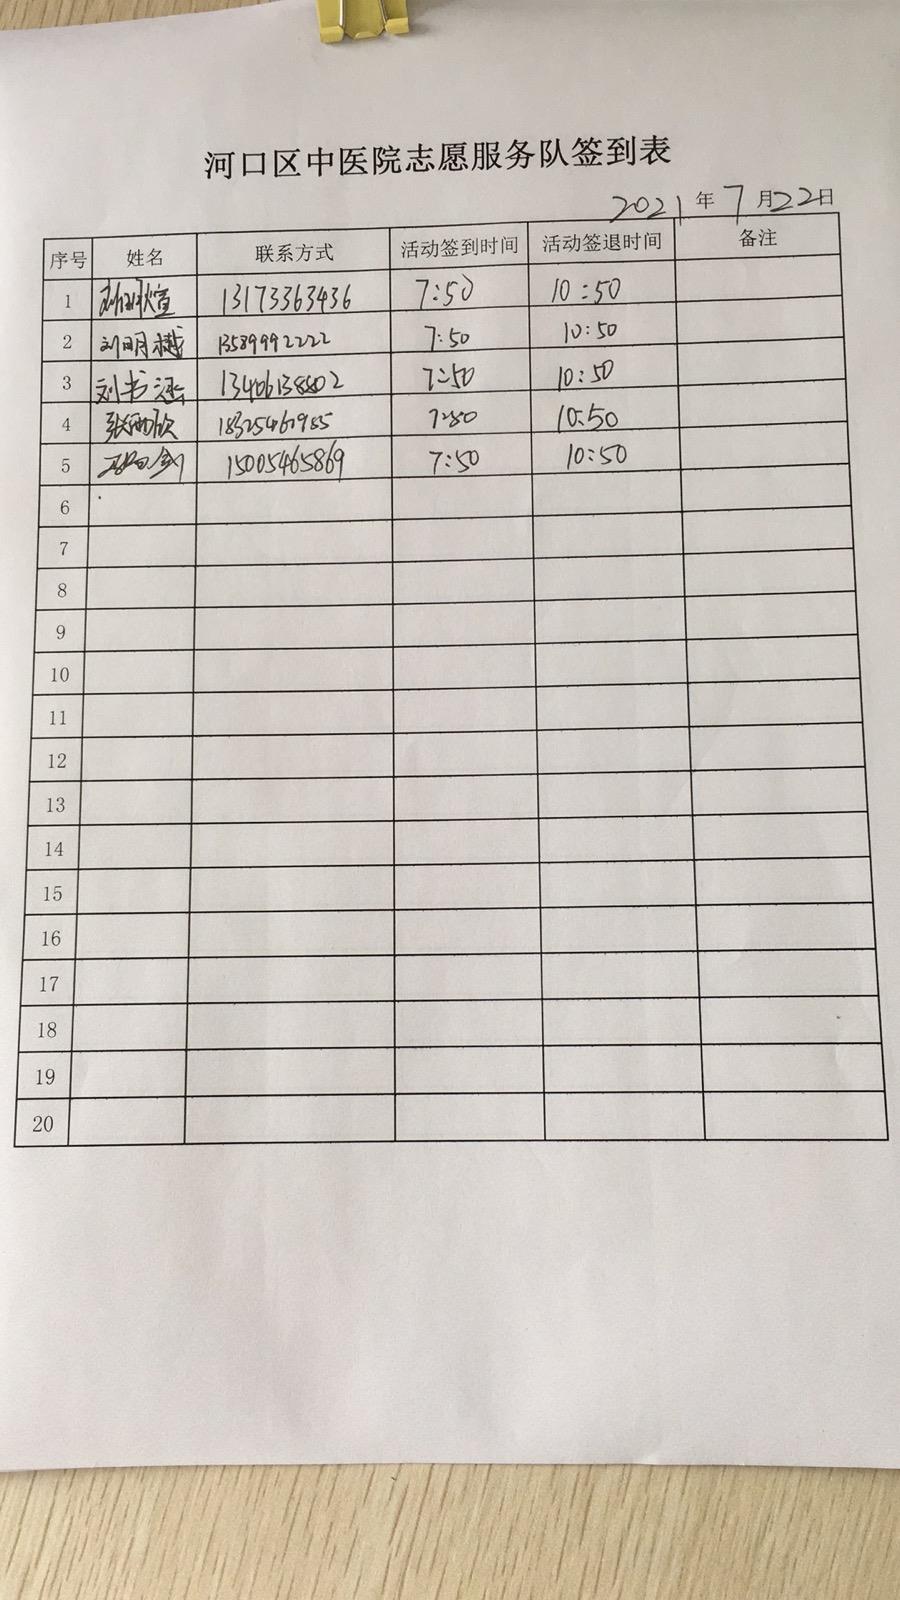 河口区中医院志愿服务队签到表
2021年7月22日
序号 姓名 联系方式 活动签到时间 活动签退时间 备注
1 13173363436 7:50 10:50
2 刘明樾 13589992222 7:50 10:50
3 刘书涵 13406138802 7:50 10:50
4 7:50 10:50
5 15005465869 7:50 10:50
6
7
8
9
10
11
12
13
14
15
16
17
18
19
20